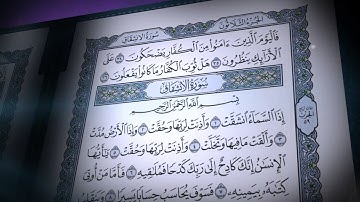 الجزء الثلاثون
سورة الانشقاق
فَالْيَوْمَ الَّذِينَ ءَامَنُوا مِنَ الْكُفَّارِ يَضْحَكُونَ ٣٤ عَلَى
الْأَرَائِكِ يَنظُرُونَ ٣٥ هَلْ ثُوِّبَ الْكُفَّارُ مَا كَانُوا يَفْعَلُونَ ٣٦
سُورَةُ الانشِقَاقِ
بِسْمِ اللَّهِ الرَّحْمَٰنِ الرَّحِيمِ
إِذَا السَّمَاءُ انشَقَّتْ ١ وَأَذِنَتْ لِرَبِّهَا وَحُقَّتْ ٢ وَإِذَا الْأَرْضُ مُدَّتْ
٣ وَأَلْقَتْ مَا فِيهَا وَتَخَلَّتْ ٤ وَأَذِنَتْ لِرَبِّهَا وَحُقَّتْ ٥ يَٰأَيُّهَا
الْإِنسَٰنُ إِنَّكَ كَادِحٌ إِلَىٰ رَبِّكَ كَدْحًا فَمُلَٰقِيهِ ٦ فَأَمَّا مَنْ أُوتِيَ
كِتَٰبَهُ بِيَمِينِهِ ٧ فَسَوْفَ يُحَاسَبُ حِسَابًا يَسِيرًا ٨ وَيَنقَلِبُ